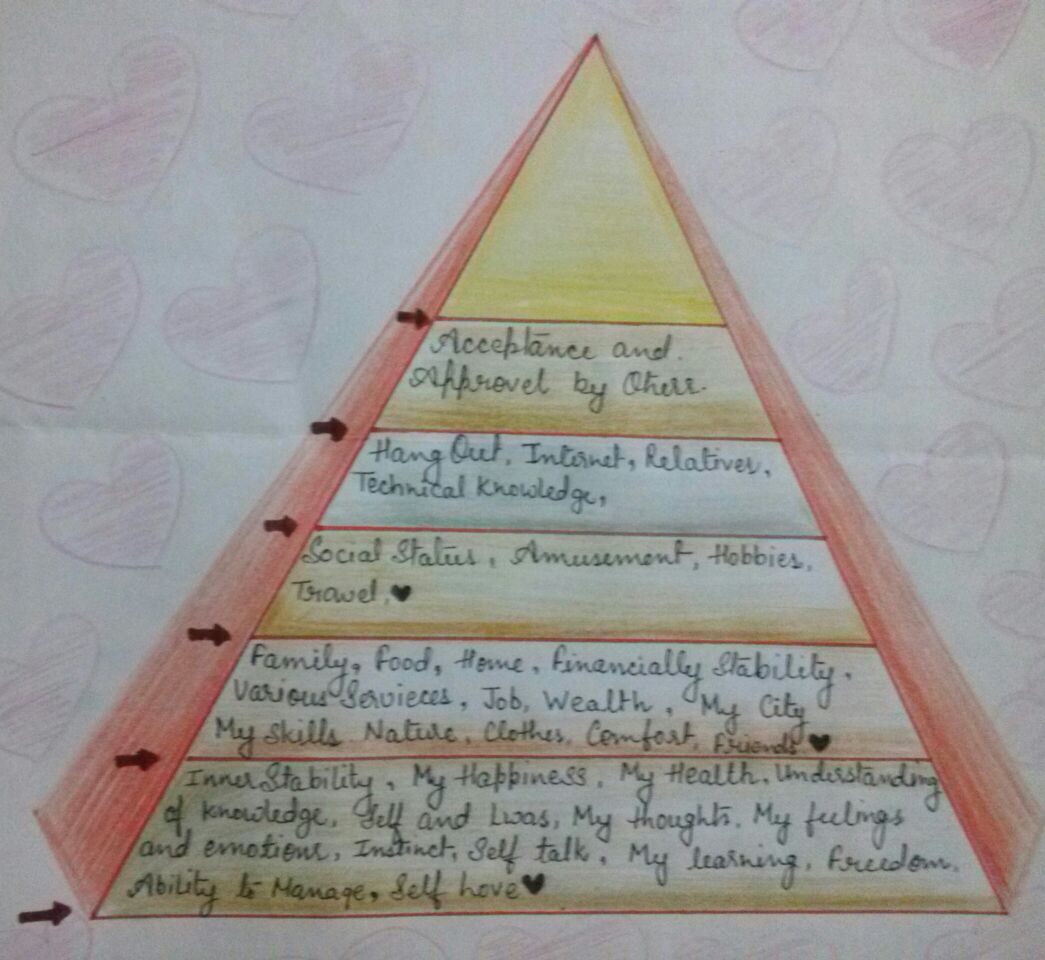 Acceptance and.
Approvel by Others.
Hang Out, Internet, Relatives,
Technical Knowledge,
Social Status, Amusement, Hobbies,
Travel,
Family, Food, Home, Financially Stability,
Various Servieces, Job, Wealth, My City
My Skills, Nature, Clothes, Comfort, Friends
Inner Stability, My Happiness, My Health, Understanding
of knowledge, Self and Lwas, My thoughts, My feelings
and emotions, Instinct, Self talk, My learning, Freedom,
Ability to Manage, Self Love